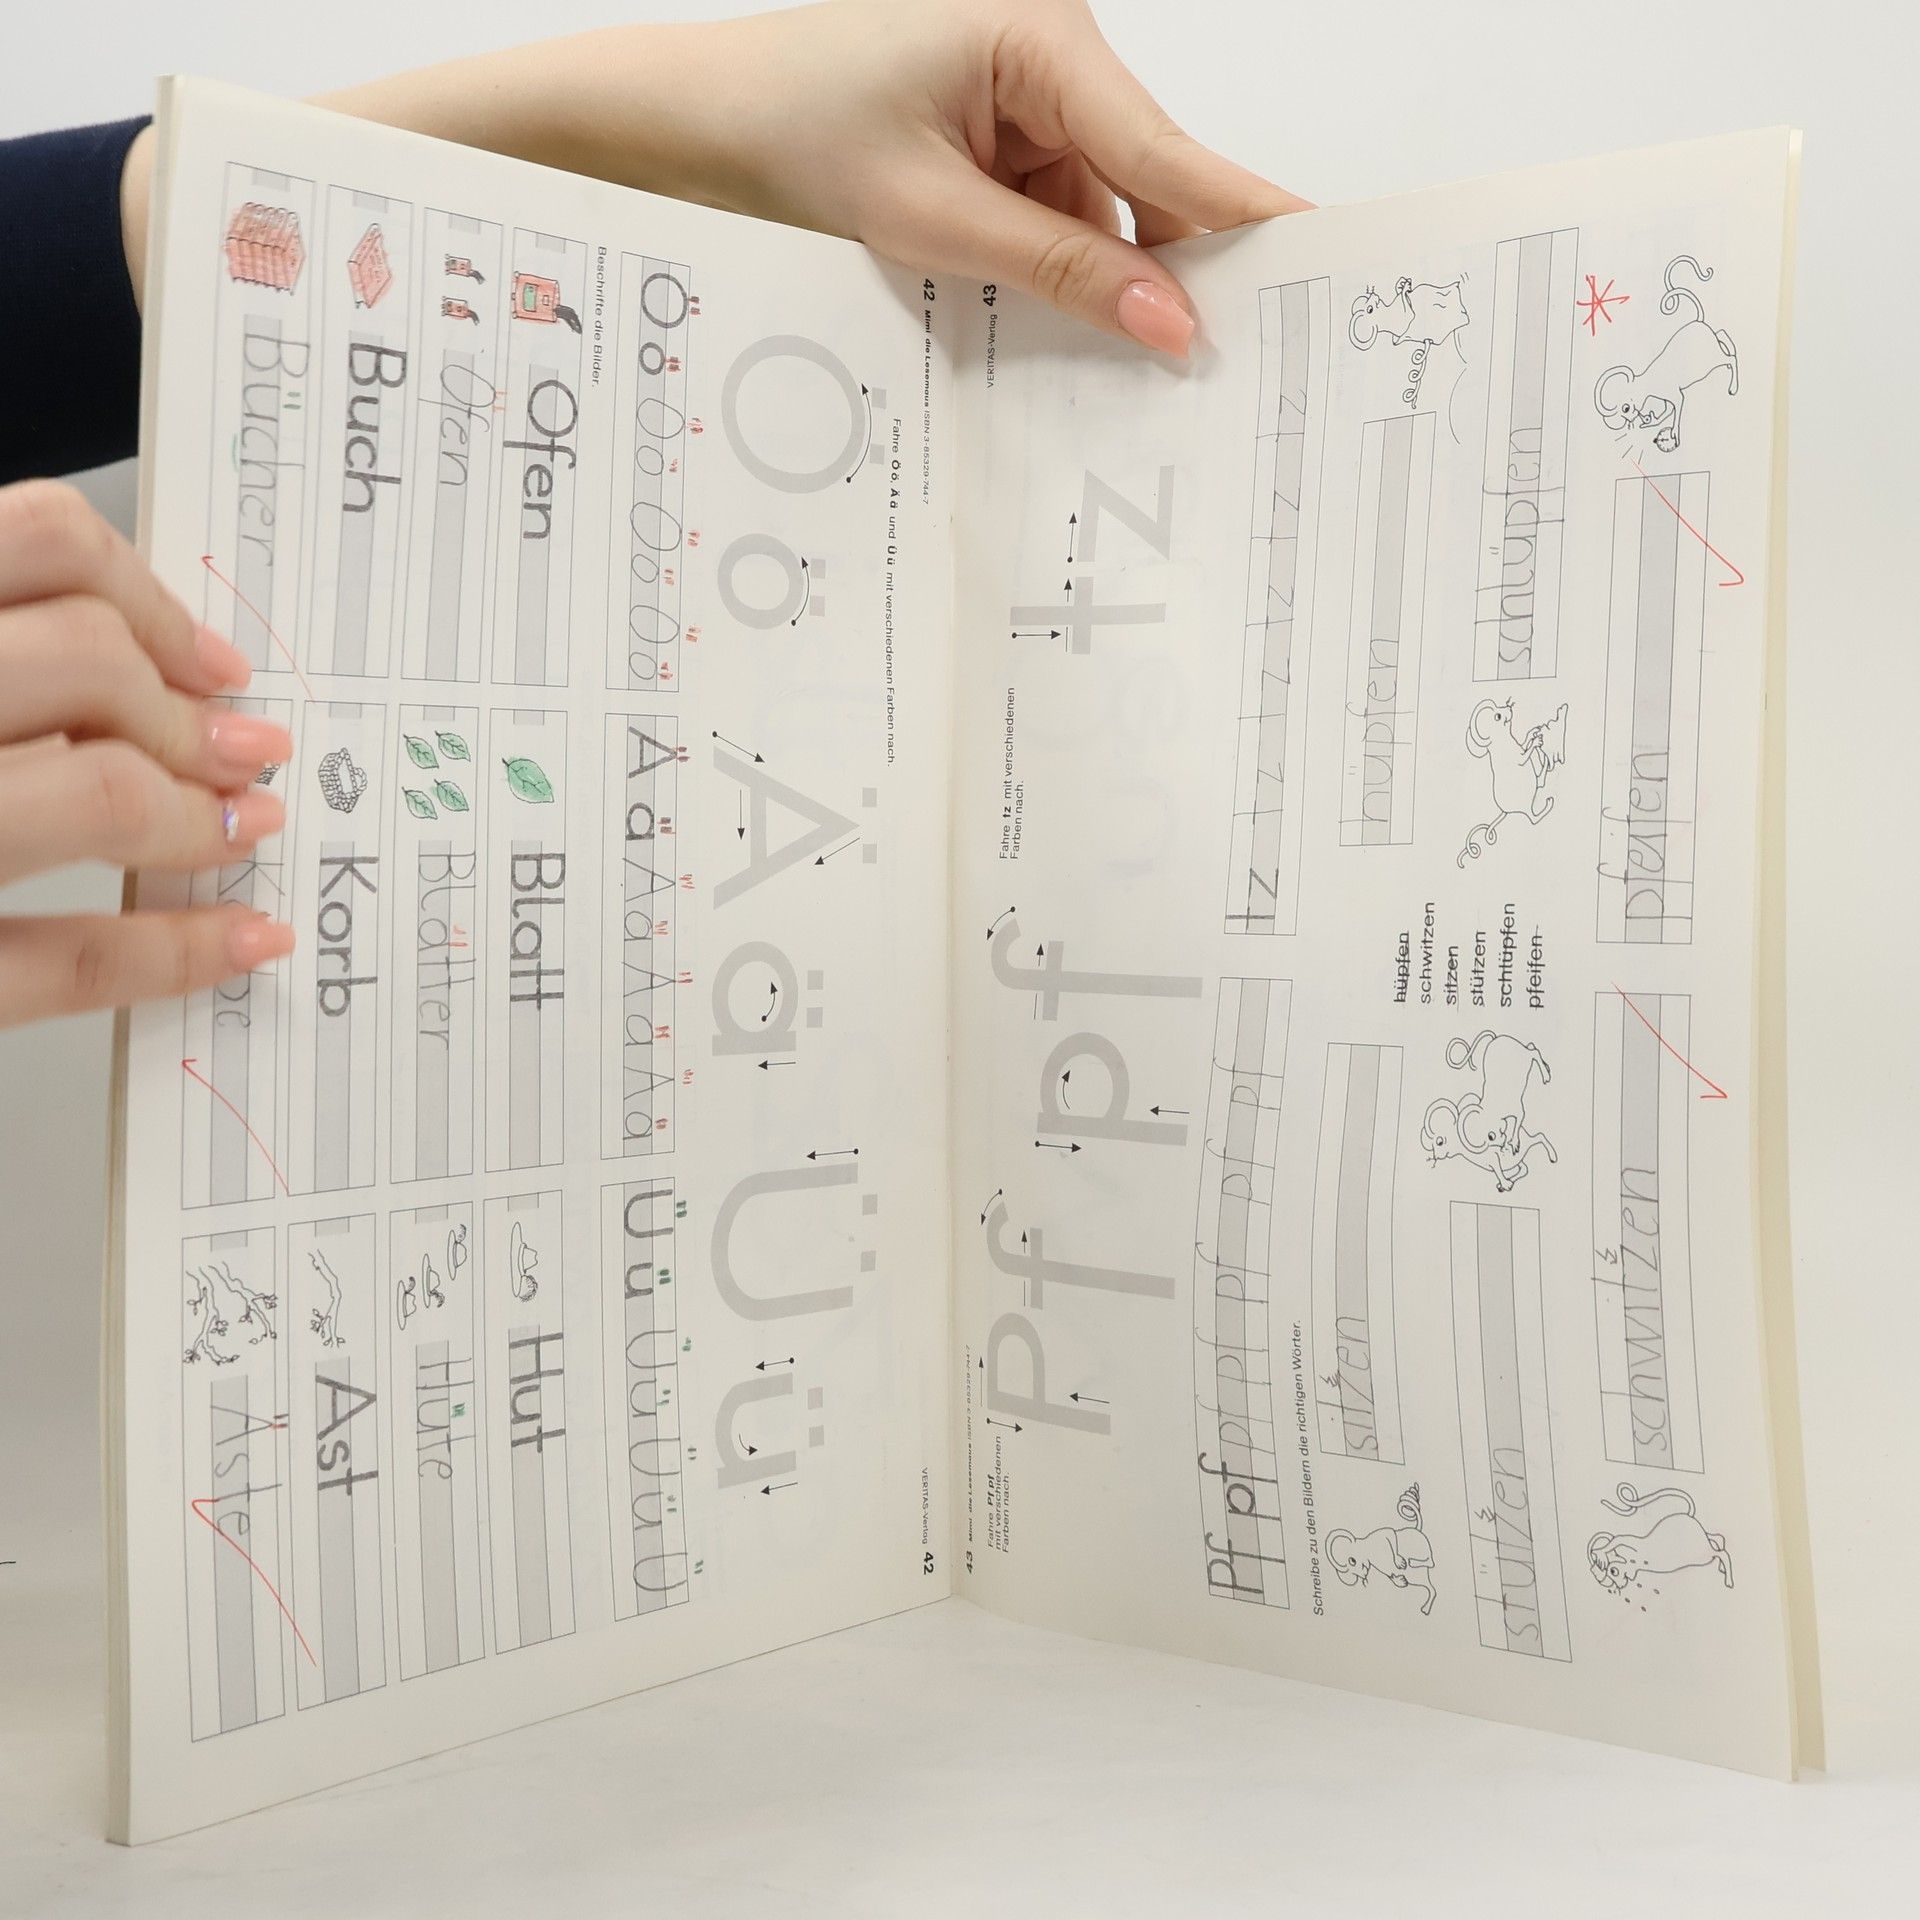 42 Mimi die Lesemaus ISBN 3-85329-744-7
VERITAS-Verlag 42
Fahre Ö ö, Ä ä und Ü ü mit verschiedenen Farben nach.
Ö ö Ä ä Ü ü
Ö ö Ö ö Ö ö Ö ö
Ä ä Ä ä Ä ä Ä ä
Ü ü Ü ü Ü ü Ü
Beschrifte die Bilder.
Ofen Blatt Hut
Öfen Blätter Hüte
Buch Korb Ast
Bücher
Äste
43 Mimi die Lesemaus ISBN 3-85329-744-7
VERITAS-Verlag 43
Fahre Pf pf
mit verschiedenen
Farben nach.
Fahre tz mit verschiedenen
Farben nach.
Pf pf tz
Pf pf pf pf pf pf pf
tz tz tz tz tz tz
Schreibe zu den Bildern die richtigen Wörter.
sitzen
hüpfen
hüpfen
schwitzen
sitzen
stützen
schlüpfen
pfeifen
stützen
schlüpfen
schwitzen
pfeifen